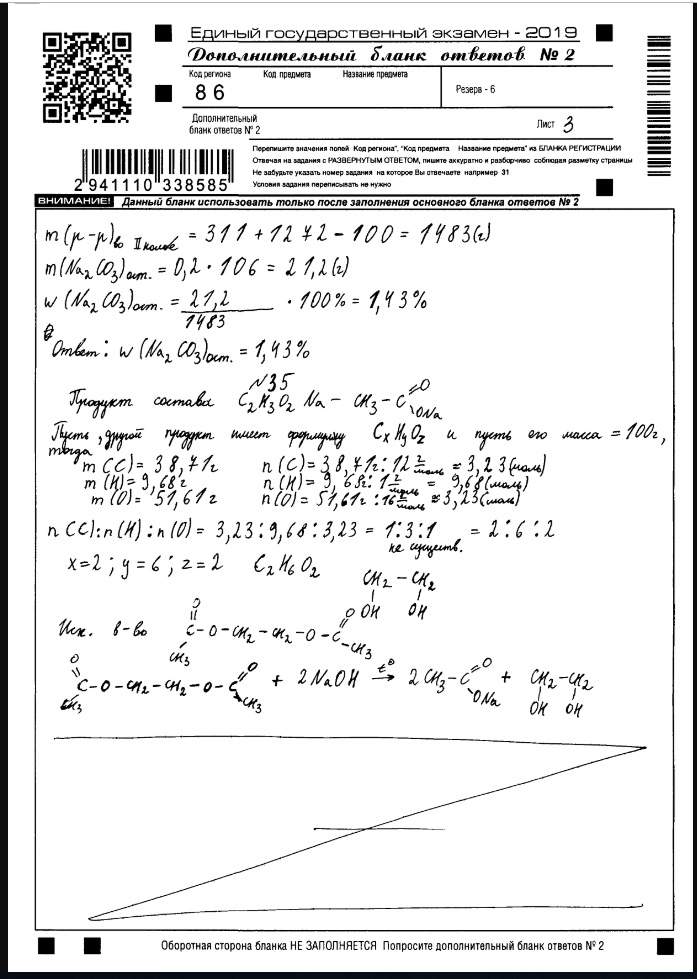 Единый государственный экзамен - 2019
Дополнительный бланк ответов № 2
Код региона Код предмета Название предмета
8 6
Резерв - 6
Дополнительный
бланк ответов № 2
Лист 3
Перепишите значения полей Код региона", "Код предмета Название предмета" из БЛАНКА РЕГИСТРАЦИИ
Отвечая на задания с РАЗВЕРНУТЫМ ОТВЕТОМ, пишите аккуратно и разборчиво соблюдая разметку страницы
Не забудьте указать номер задания на которое Вы отвечаете например 31
Условия задания переписывать не нужно
2 941110 338585
ВНИМАНИЕ! Данный бланк использовать только после заполнения основного бланка ответов № 2
m(р-р)во II колбе = 311 + 1272 - 100 = 1483(г)
m(Na2CO3)ост. = 0,2 · 106 = 21,2(г)
w(Na2CO3)ост. = 21,2/1483 · 100% = 1,43%
Ответ: w(Na2CO3)ост. = 1,43%
№35
Продукт состава C2H3O2Na – CH3 – C =O ONa
Пусть, другой продукт имеет формулу CxHyOz и пусть его масса = 100г,
тогда
m(C) = 38,71г n(C) = 38,71г : 12 г/моль = 3,23(моль)
m(H) = 9,68г n(H) = 9,68г : 1 г/моль = 9,68(моль)
m(O) = 51,61г n(O) = 51,61г : 16 г/моль = 3,23(моль)
n(C):n(H):n(O) = 3,23:9,68:3,23 = 1:3:1 = 2:6:2
не существ.
x=2; y=6; z=2 C2H6O2
CH2 – CH2
OH OH
Исх. в-во O=C(CH3)–O–CH2–CH2–O–C(=O)–CH3
O=C(CH3)–O–CH2–CH2–O–C(=O)–CH3 + 2NaOH t° → 2CH3–C(=O)–ONa + CH2–CH2
OH OH
Оборотная сторона бланка НЕ ЗАПОЛНЯЕТСЯ Попросите дополнительный бланк ответов № 2